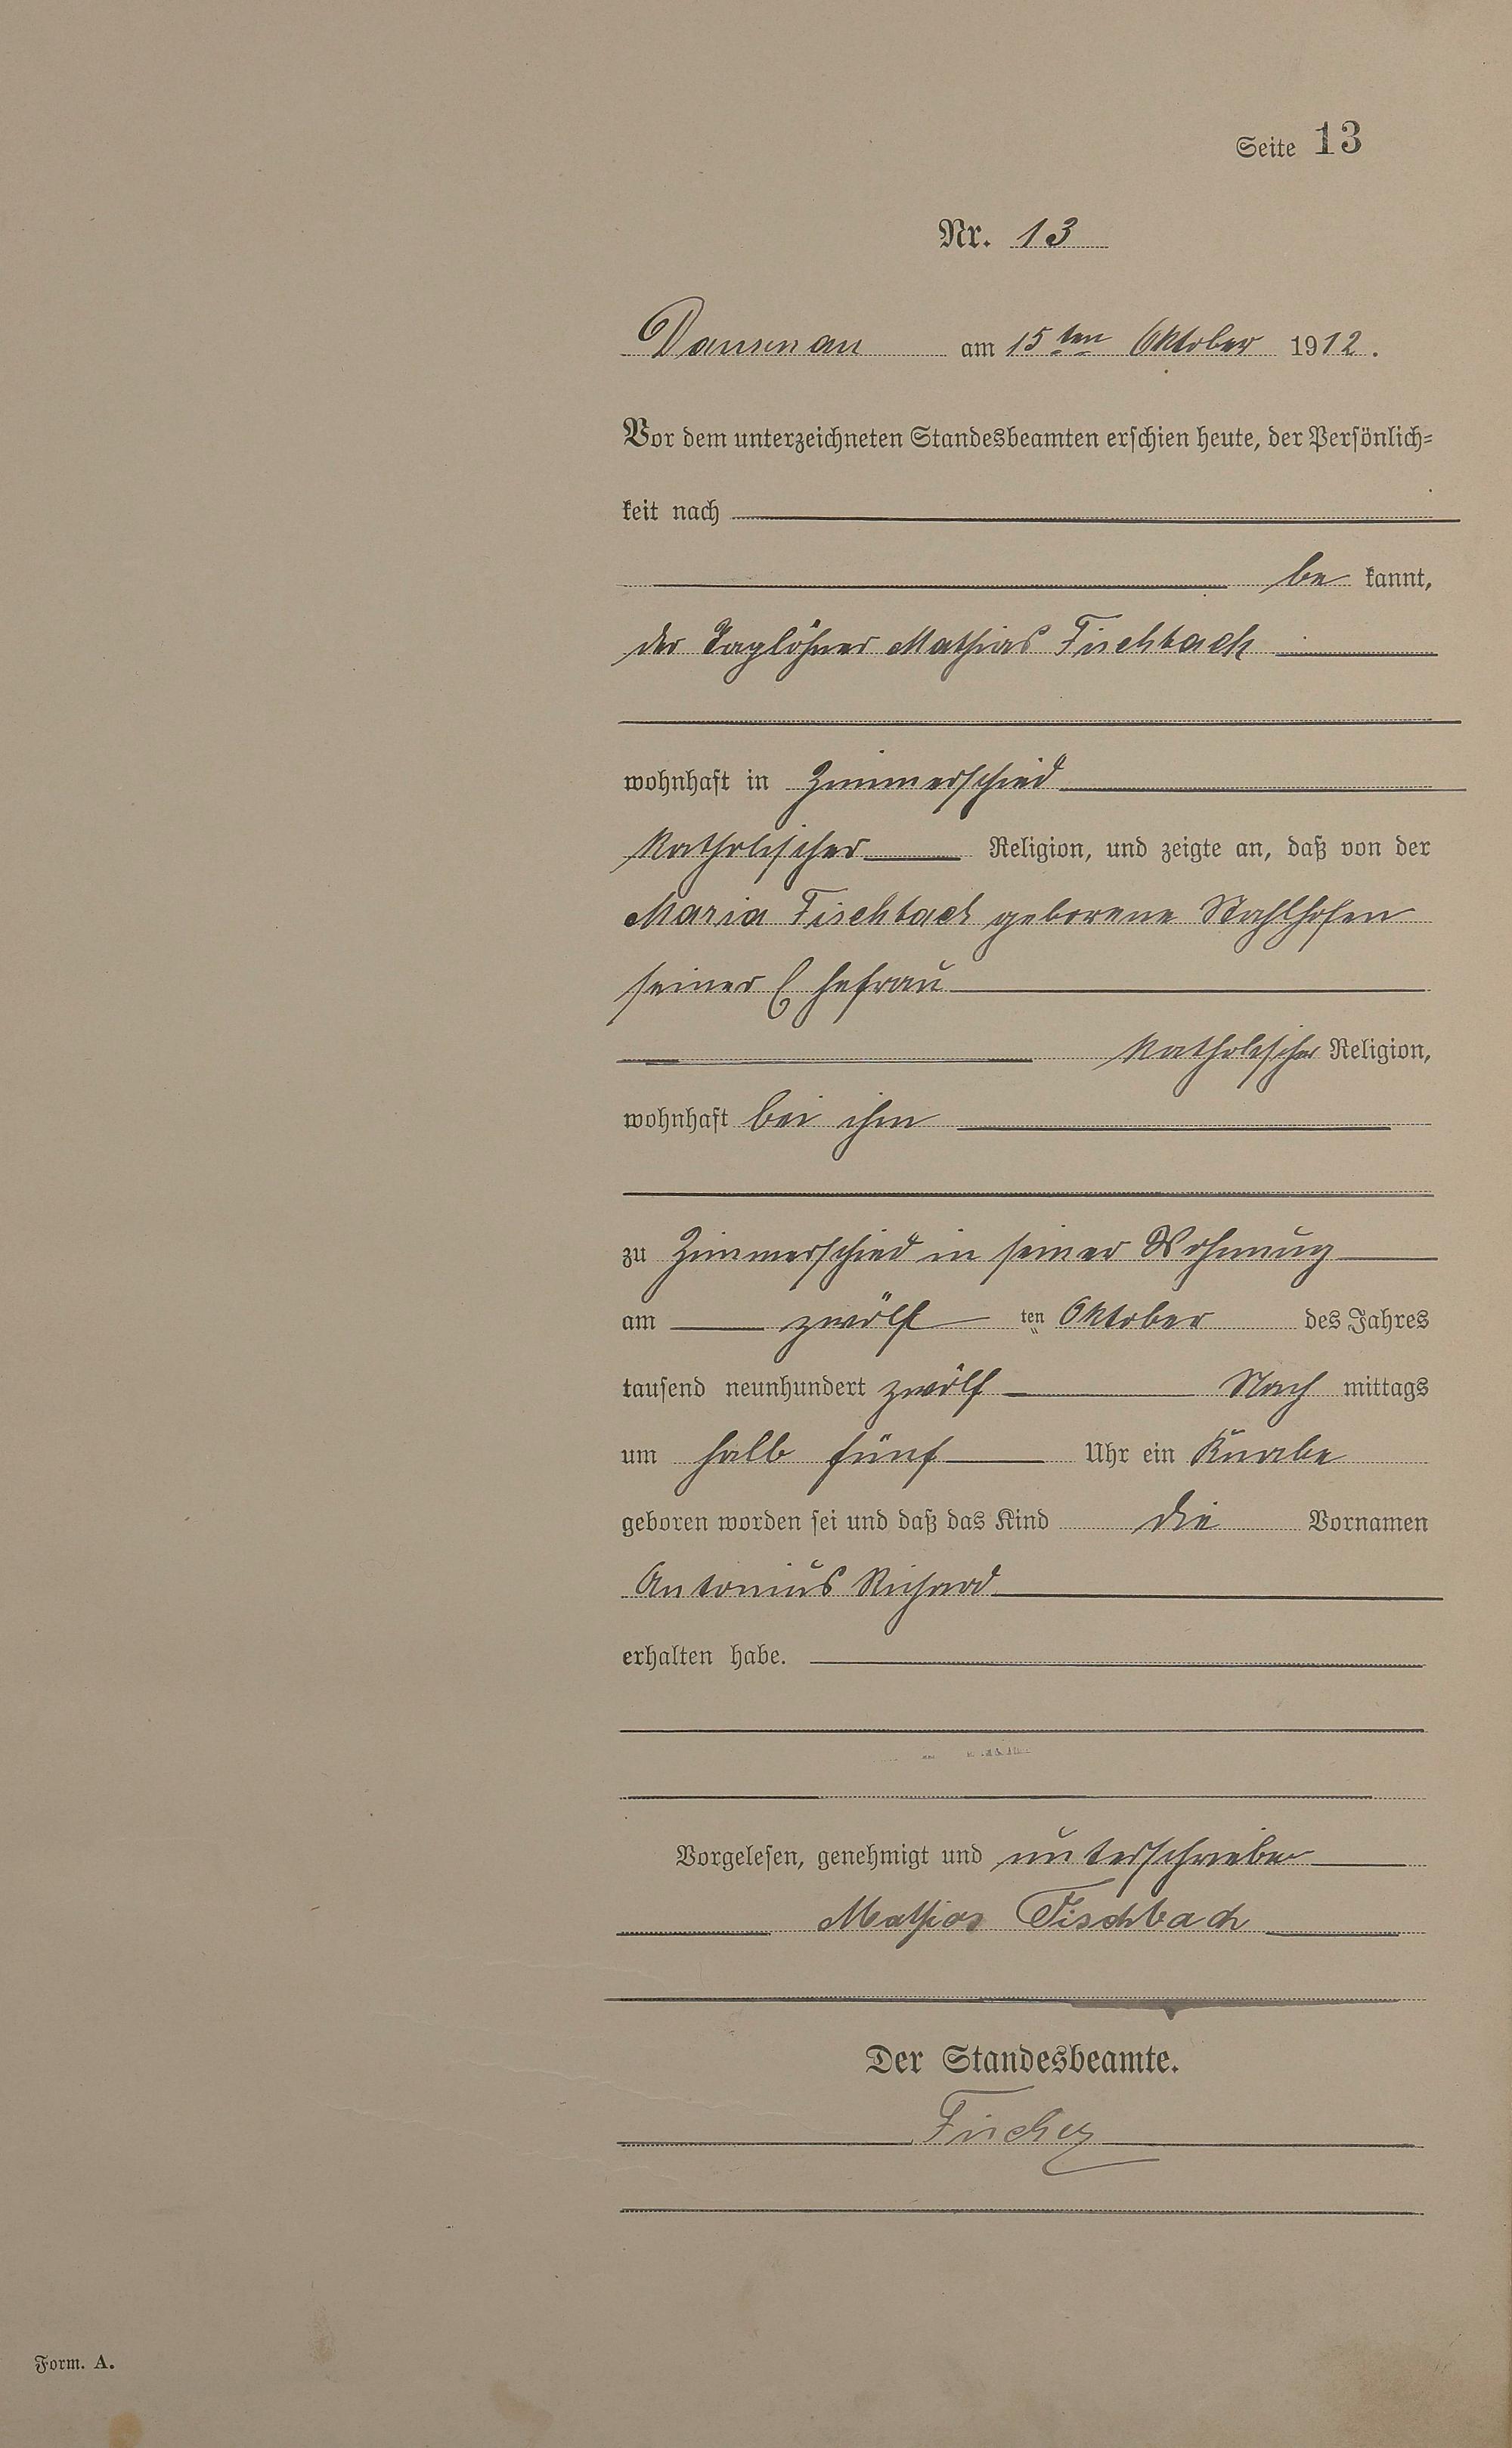 Seite 13
Nr. 13
Dausenau am 15ten Oktober 1912.
Vor dem unterzeichneten Standesbeamten erschien heute, der Persönlich-
keit nach
be kannt,
der Taglöhner Mathias Fischbach
wohnhaft in Zimmerschied
katholischer Religion, und zeigte an, daß von der
Maria Fischbach geborene Stahlhofen
seiner Ehefrau
katholischer Religion,
wohnhaft bei ihm
zu Zimmerschied in seiner Wohnung
am zwölf ten Oktober des Jahres
tausend neunhundert zwölf Nach mittags
um halb fünf Uhr ein Knabe
geboren worden sei und daß das Kind die Vornamen
Antonius Richard
erhalten habe.
Vorgelesen, genehmigt und unterschrieben
Mathias Fischbach
Der Standesbeamte.
Form. A.